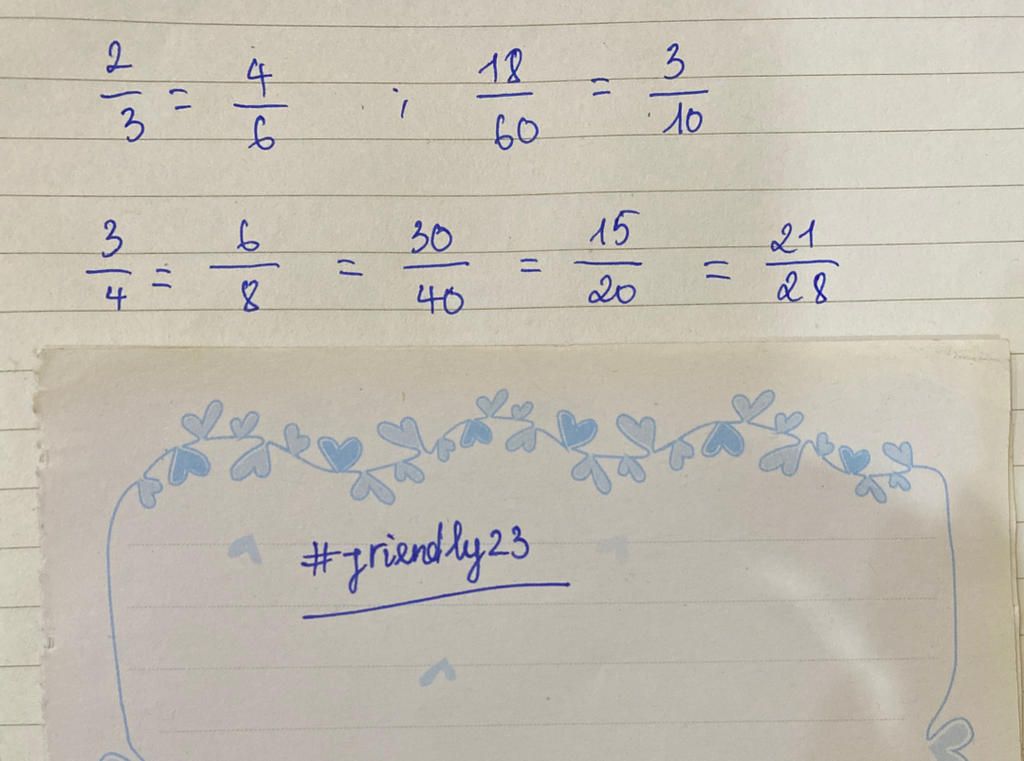 2/3 = 4/6 ; 18/60 = 3/10
3/4 = 6/8 = 30/40 = 15/20 = 21/28
#friendly23